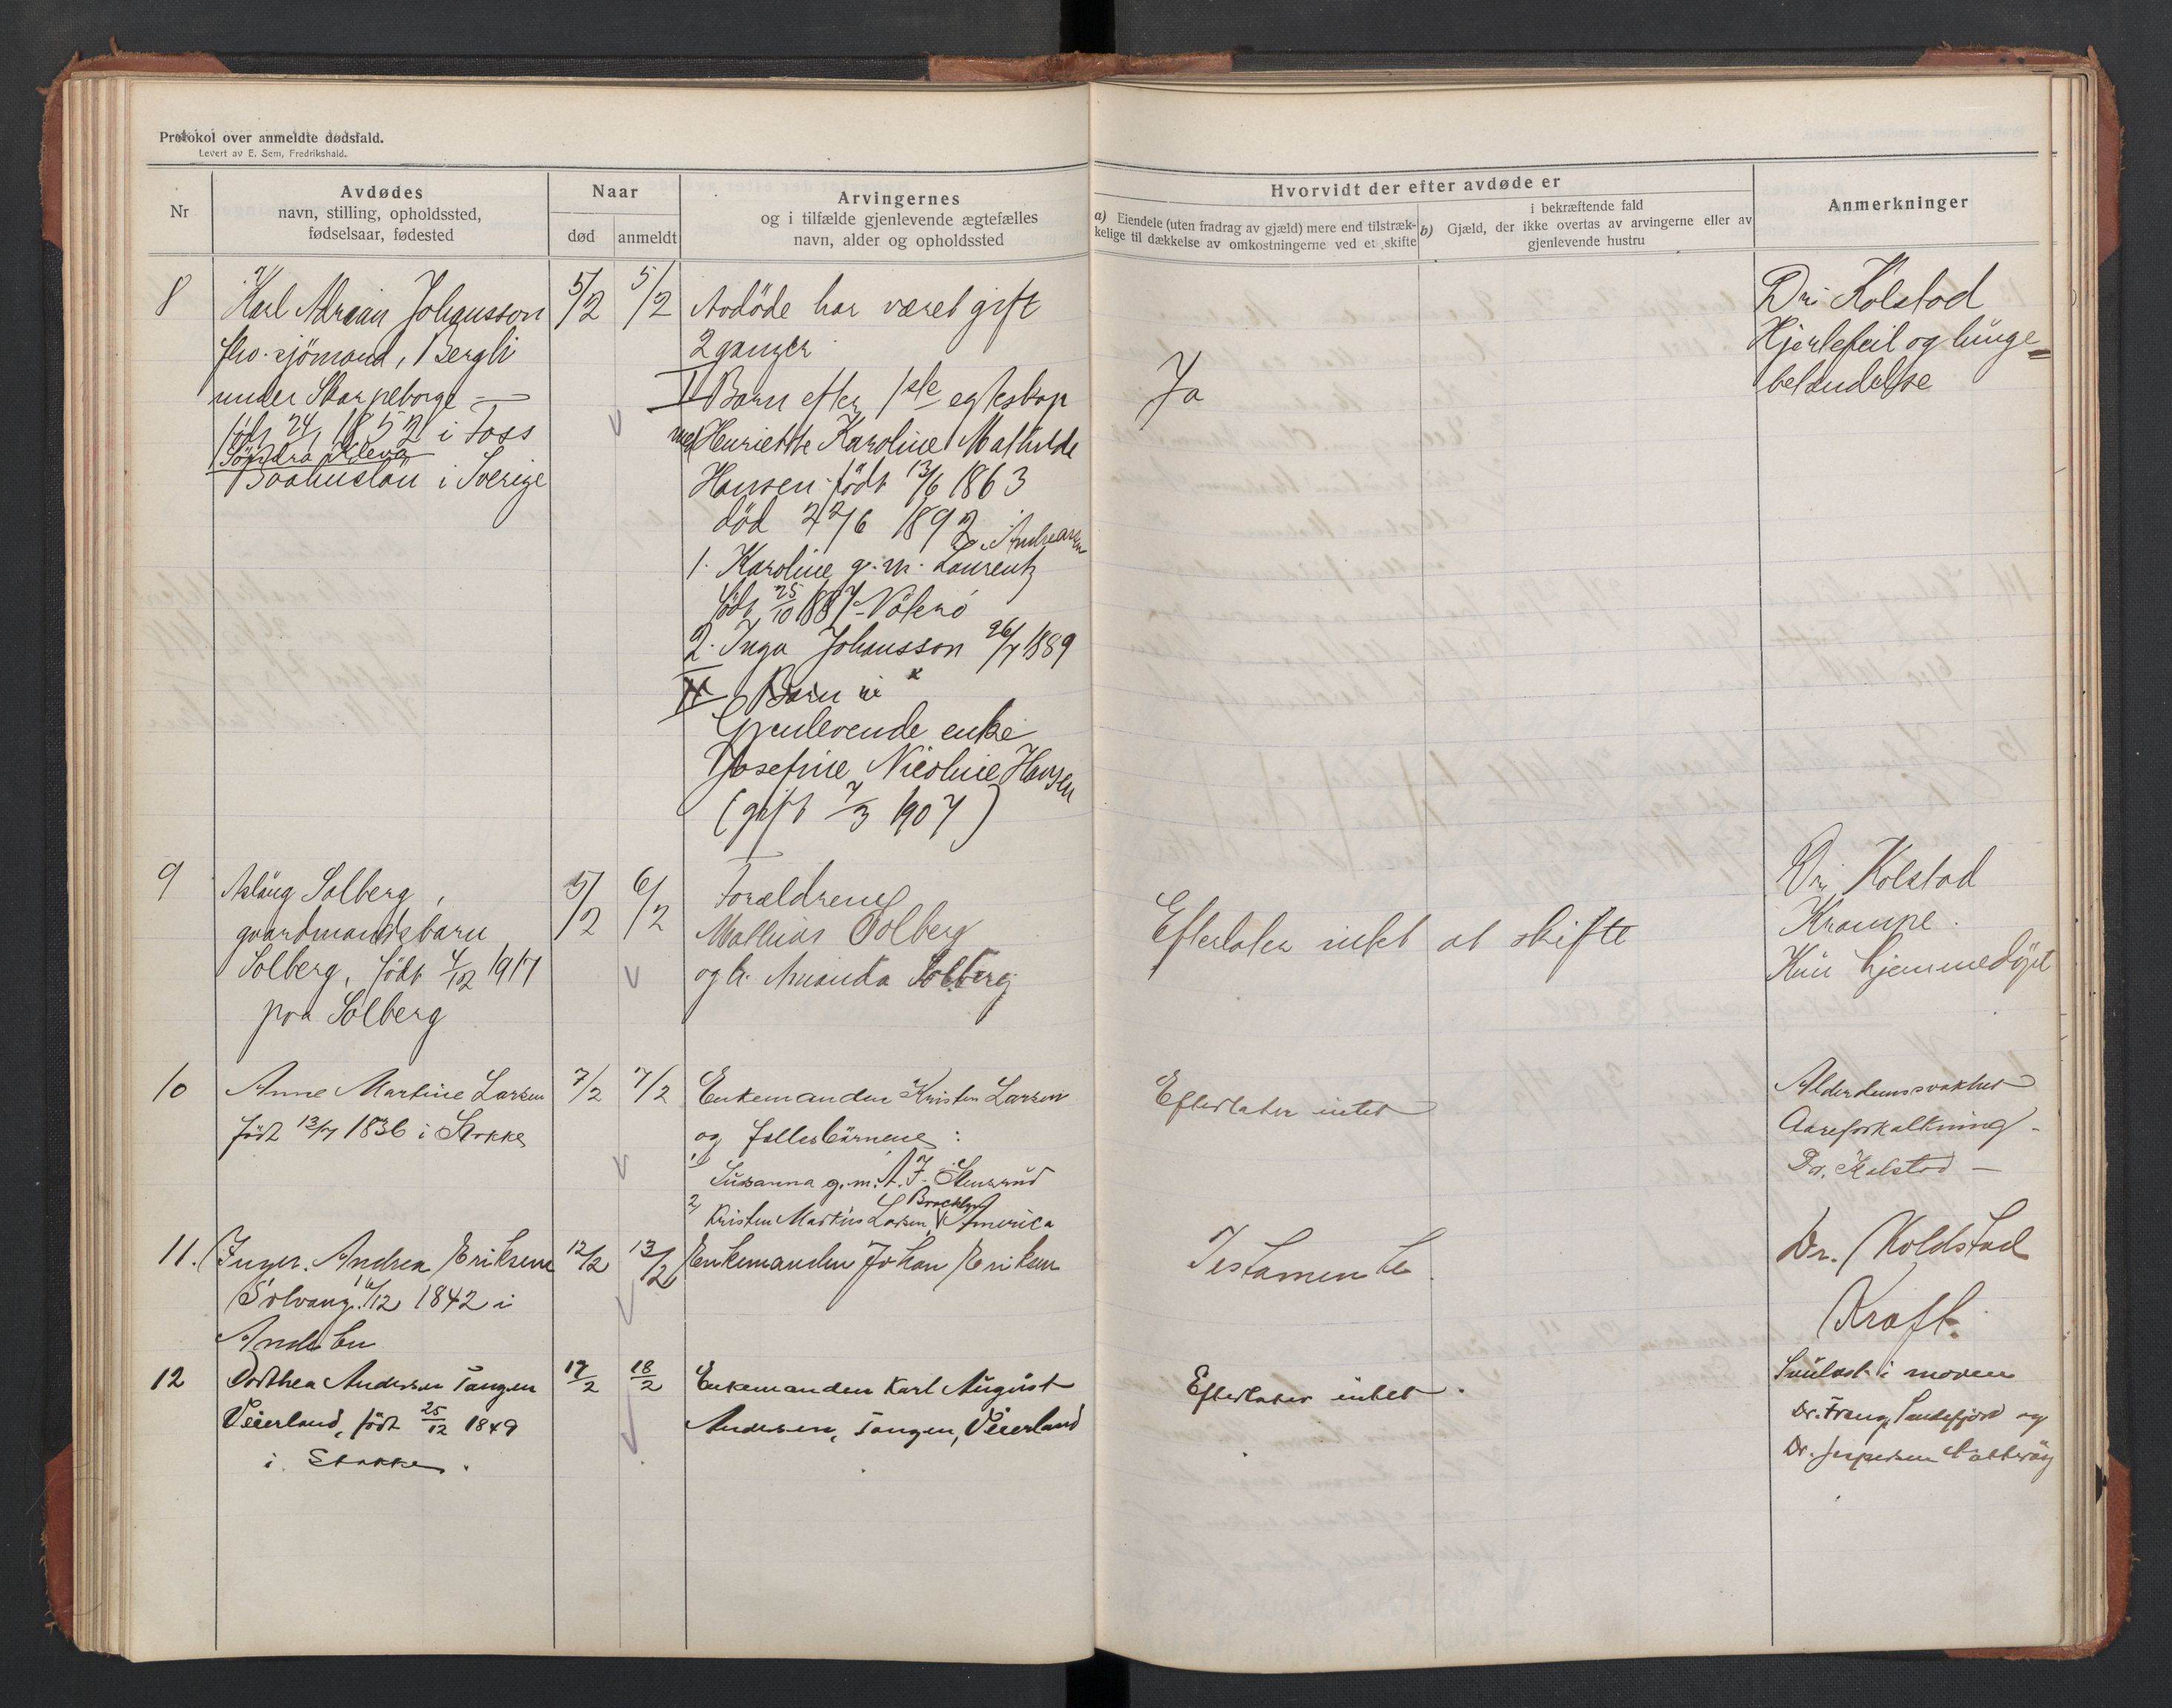 Protokol over anmeldte dødsfald.
Levert av E. Sem, Fredrikshald.
Nr
Avdødes
navn, stilling, opholdssted,
fødselsaar, fødested
Naar
død
anmeldt
Arvingernes
og i tilfælde gjenlevende ægtefælles
navn, alder og opholdssted
Hvorvidt der efter avdøde er
a) Eiendele (uten fradrag av gjæld) mere end tilstræk-
kelige til dækkelse av omkostningerne ved et skifte
i bekræftende fald
b) Gjæld, der ikke overtas av arvingerne eller av
gjenlevende hustru
Anmerkninger
8
Karl Adrian Johansson
fhv. sjömand, Bergli
under Skarpeborge
født 24/1 1852 i Foss
Söndra Kleva
Baahuslän i Sverige
5/2
5/2
Avdöde har været gift
2 ganger
I Barn efter 1ste egteskap
med Henriette Karoline Mathilde
Hansen født 13/6 1863
död 22/6 1892
1. Karoline g.m. Laurentz Andreasen
født 25/10 1887
2. Inga Johansson 26/7 1889
II Barn
Gjenlevende enke
Josefine Nicoline Hansen
(gift 7/3 1907)
Ja
Dr. Kolstad
Hjertefeil og lunge=
betændelse
9
Aslaug Solberg,
gaardmandsbarn
Solberg, født 4/12 1917
paa Solberg
5/2
6/2
Forældrene
Mathias Solberg
og h. Amanda Solberg
Efterlater intet at skifte
Dr. Kolstad
Krampe.
Kun hjemmedöpt
10
Anne Martine Larsen
født 13/7 1836 i Stokke
7/2
7/2
Enkemanden Kristen Larsen
og fællesbarnene:
1) Susanna g.m. A. F. Stensrud
2) Kristen Martius Larsen, Brooklyn America
Efterlater intet
Alderdomssvakhet
Aareforkalkning -
Dr. Kolstad -
11.
Inger Andrea Eriksen
Solvang 16/12 1842 i
Andebu
12/2
13/2
Enkemanden Johan Eriksen
Testamente
Dr. Koldstad
Kræft.
12
Dorthea Andersen Tangen
Veierland, født 25/12 1849
i Stokke.
17/2
18/2
Enkemanden Karl August
Andersen, Tangen, Veierland
Efterlater intet.
i maven
Dr. Franz, Sandefjord og
Dr. Jespersen Nötteröy